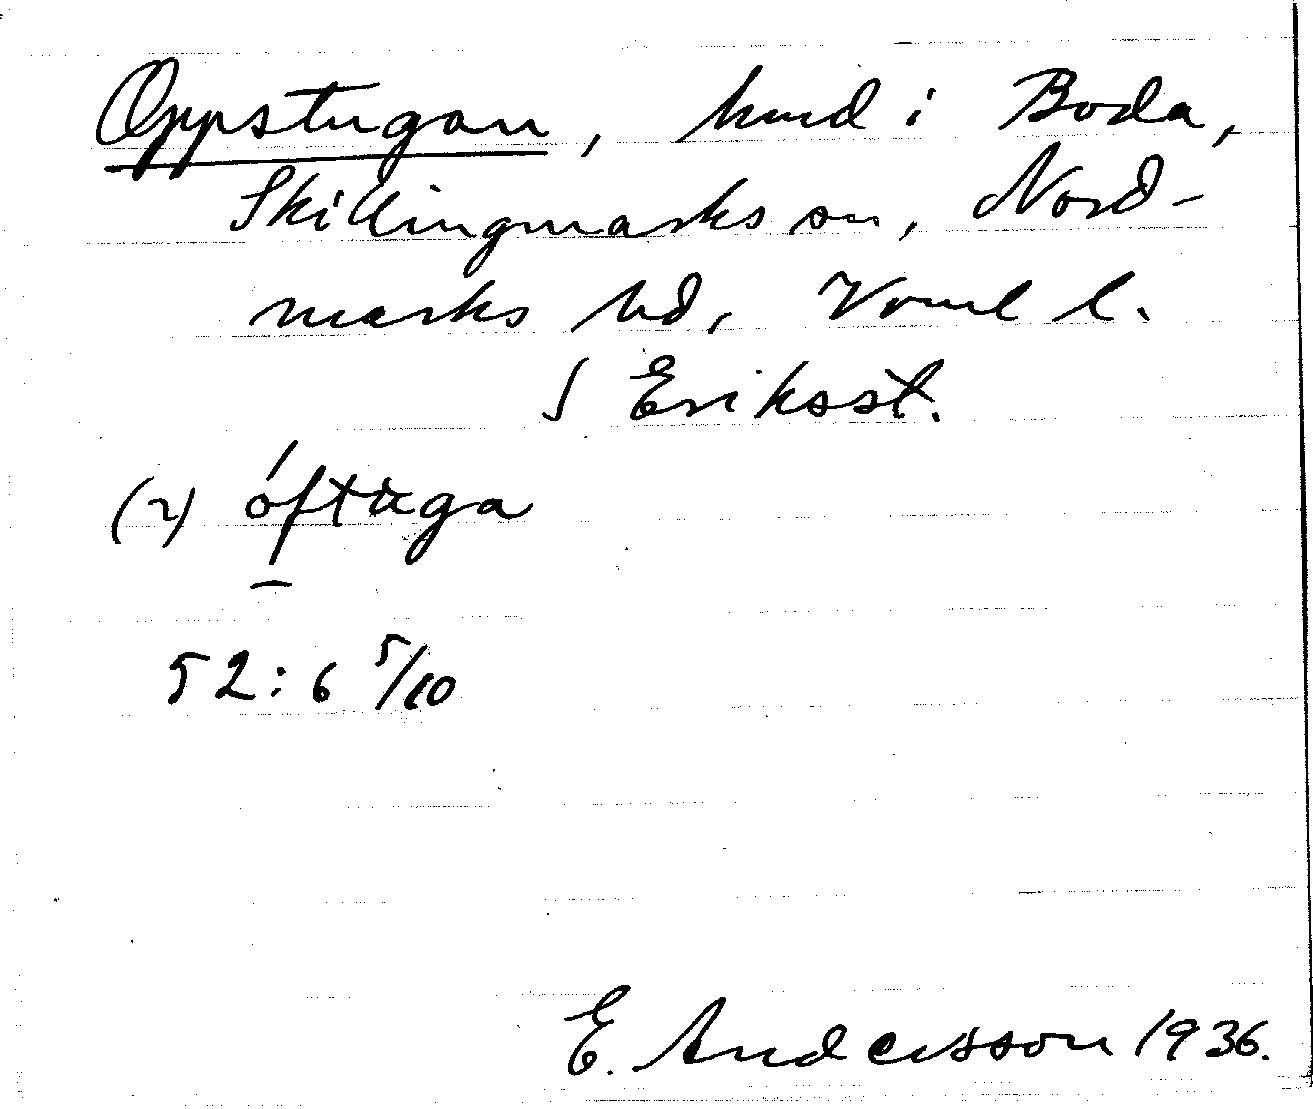 Oppstugan, hmd i Boda,
Skillingmarks sn, Nord-
marks hd, Vrml l.
∫ Eriksst.
(2) óftuga
52:6 5/10
E. Andersson 1936.